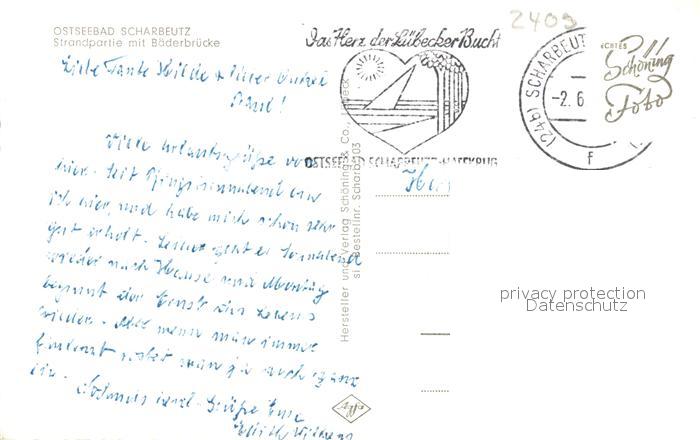 2409
OSTSEEBAD SCHARBEUTZ
Strandpartie mit Bäderbrücke
Das Herz der Lübecker Bucht
OSTSEEBAD SCHARBEUTZ-HAFFKRUG
(24b) SCHARBEUT
-2.6
f
ECHTES
Schöning
Foto
Liebe Tante Hilde & lieber Onkel
Paul!
Viele Urlaubsgrüße von
hier. Seit Pfingstsonnabend bin
ich hier, und habe mich schon sehr
gut erholt. Leider geht es Sonnabend
wieder nach Hause und Montag
beginnt der Ernst des Lebens
wieder. Aber wenn man immer
man ja auch ganz
ein. Nochmals herzl. Grüße Eure
Edith
Hersteller und Verlag Schöning & Co., Lübeck
Bestellnr. Scharb 103
privacy protection
Datenschutz
Agfa